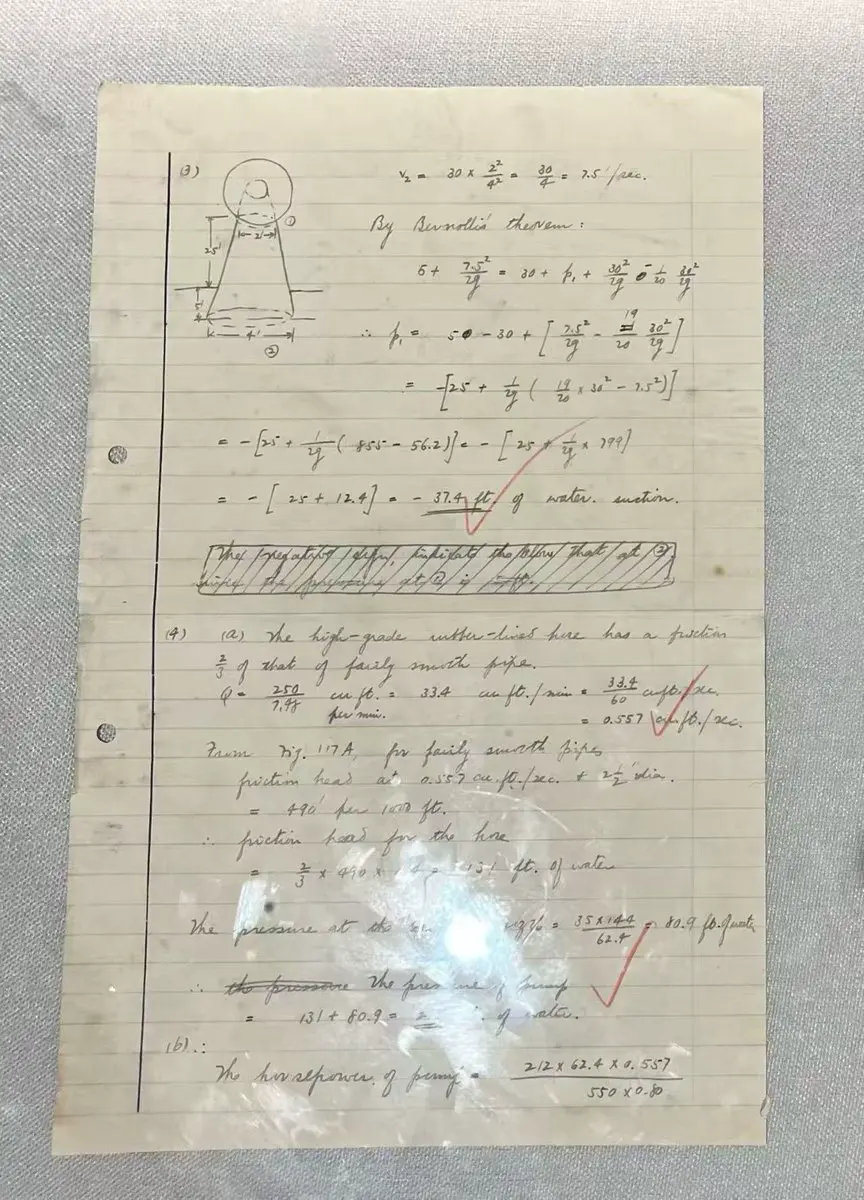 (3)
①
2'
25'
5'
4'
②
v₂ = 30 × 2²/4² = 30/4 = 7.5'/sec.
By Bernollis' theorem:
5 + 7.5²/2g = 30 + p₁ + 30²/2g - 1/20 30²/2g
∴ p₁ = 5 - 30 + [7.5²/2g - 19/20 30²/2g]
= -[25 + 1/2g (19/20 × 30² - 7.5²)]
= -[25 + 1/2g (855 - 56.2)] = -[25 + 1/2g × 799]
= -[25 + 12.4] = - 37.4 ft. of water. suction.
The negative sign, indicate that at ②
the pressure at ② is
(4) (a) The high-grade rubber-lined hose has a friction
2/3 of that of fairly smooth pipe.
Q = 250/7.48 cu ft. per min. = 33.4 cu ft./min = 33.4/60 cu ft./sec.
= 0.557 cu ft./sec.
From Fig. 117A, for fairly smooth pipes
friction head at 0.557 cu. ft./sec. & 2½" dia.
= 490' per 1000 ft.
∴ friction head for the hose
= 2/3 × 490 × = 131 ft. of water
The pressure at the = 35×144/62.4 = 80.9 ft. of water
∴ the pressure The pressure of pump
= 131 + 80.9 = 2 of water.
(b) ∴
The horsepower of pump = 212 × 62.4 × 0.557/550 × 0.80